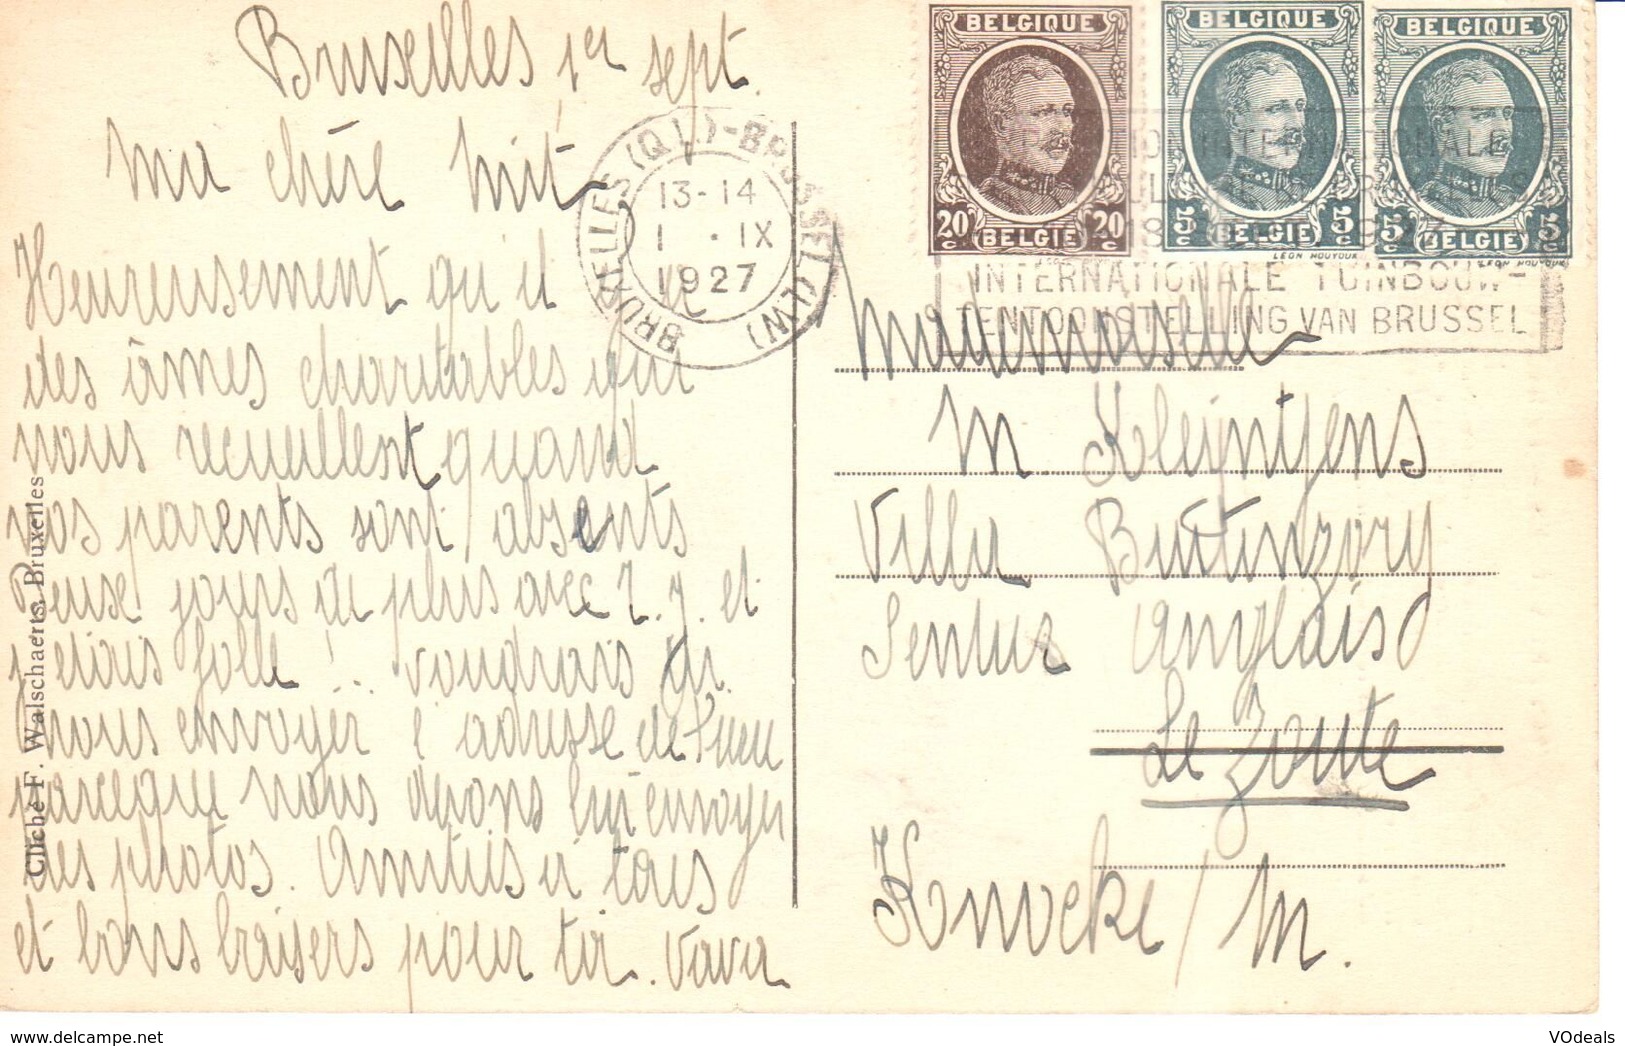 Bruxelles 1er sept.
Ma chère Mit
Heureusement qu'il y a
des âmes charitables qui
nous recueillent quand
nos parents sont absents
jours de plus avec J. J. et
étais folle voudrais tu
nous envoyer l'adresse de
parceque nous devons lui envoyer
des photos. Amitiés à tous
et bons baisers pour toi. Vava
Cliché F. Walschaerts, Bruxelles
BRUXELLES (Q.L.) - BRUSSEL (L.W)
13-14
1 . IX
1927
BELGIQUE
20c 20c
BELGIE
BELGIQUE
5c 5c
BELGIE
LEON HOUYOUX
BELGIQUE
5c 5c
BELGIE
LEON HOUYOUX
INTERNATIONALE
1927
INTERNATIONALE TUINBOUW-
TENTOONSTELLING VAN BRUSSEL
Mademoiselle
M. Kleyntjens
Villa Buitenzorg
Sentier Anglais
Le Zoute
Knocke / M.
www.delcampe.net
VOdeals